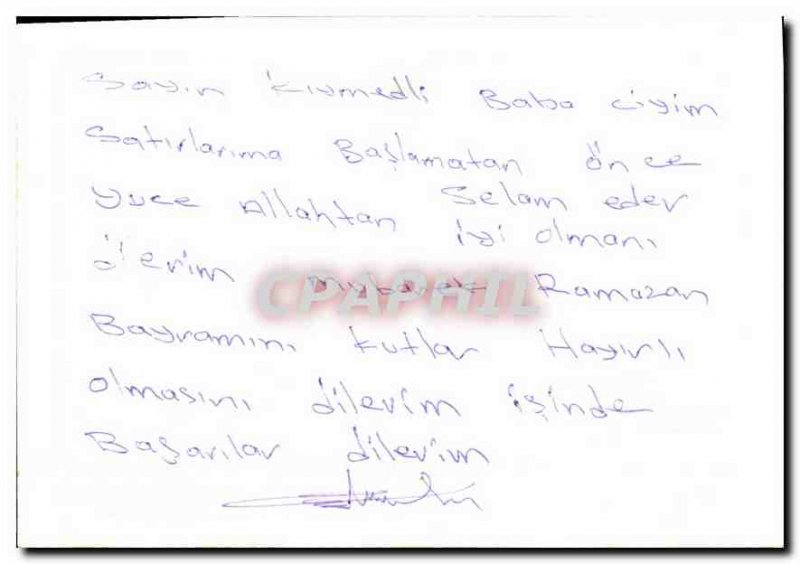 Sayın Kıymedli Baba ciyim
Satırlarıma Başlamatan önce
yuce Allahtan Selam eder
iyi olmanı
dilerim mubarek Ramazan
Bayramını kutlar Hayırlı
olmasını dilerim işinde
Başarılar dilerim
CPAPHIL